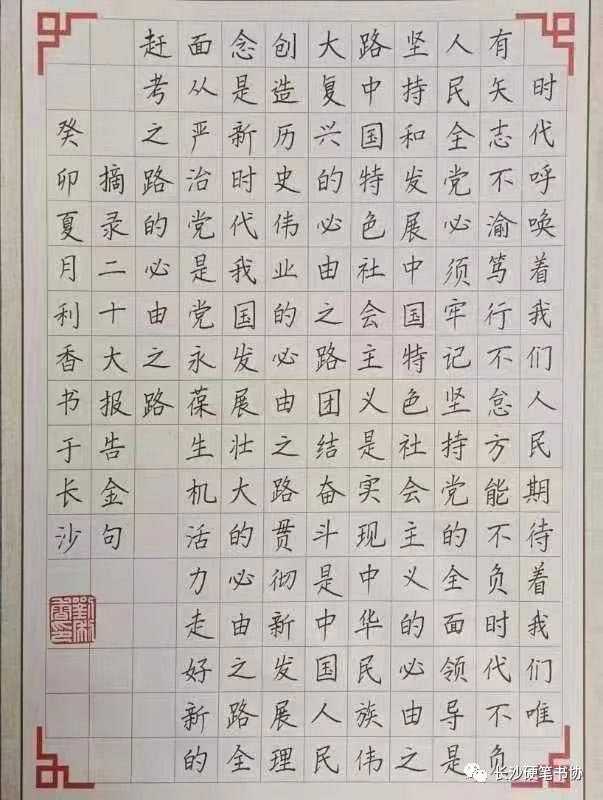 时代呼唤着我们人民期待着我们唯
有矢志不渝笃行不怠方能不负时代不负
人民全党必须牢记坚持党的全面领导是
坚持和发展中国特色社会主义的必由之
路中国特色社会主义是实现中华民族伟
大复兴的必由之路团结奋斗是中国人民
创造历史伟业的必由之路贯彻新发展理
念是新时代我国发展壮大的必由之路全
面从严治党是党永葆生机活力走好新的
赶考之路的必由之路
摘录二十大报告金句
癸卯夏月利香书于长沙
长沙硬笔书协